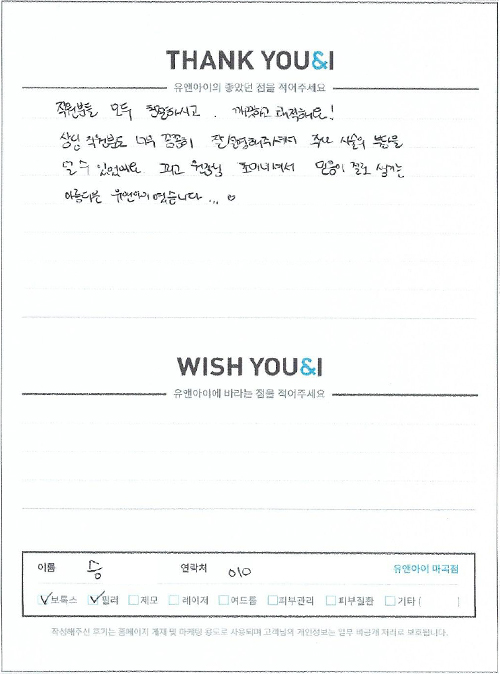 THANK YOU&I
유앤아이의 좋았던 점을 적어주세요
직원분들 모두 친절하시고. 깨끗하고 쾌적해요!
상담 직원분도 너무 꼼꼼히 잘 설명해주시며 주사 시술의 부담을
덜 수 있었어요 피고 원장님 포기내려서 믿음이 절로 생기는
아름다운 유앤아이 였습니다... ♡
WISH YOU&I
유앤아이에 바라는 점을 적어주세요
이름 승 연락처 010 유앤아이 마곡점
보톡스 필러 제모 레이저 여드름 피부관리 피부질환 기타 ( )
작성해주신 후기는 홈페이지 게재 및 마케팅 용도로 사용되며 고객님의 개인정보는 일부 비공개 처리로 보호됩니다.